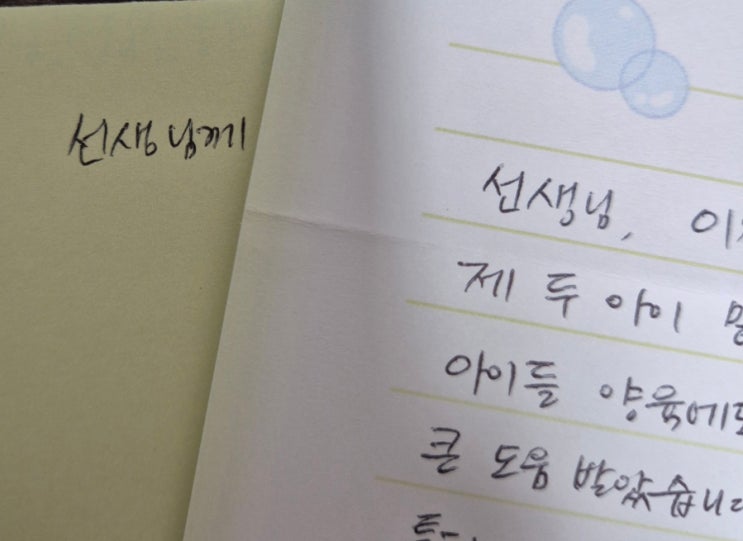 선생님께
선생님,
제 두 아이
아이들 양육에도
큰 도움 받았습니다